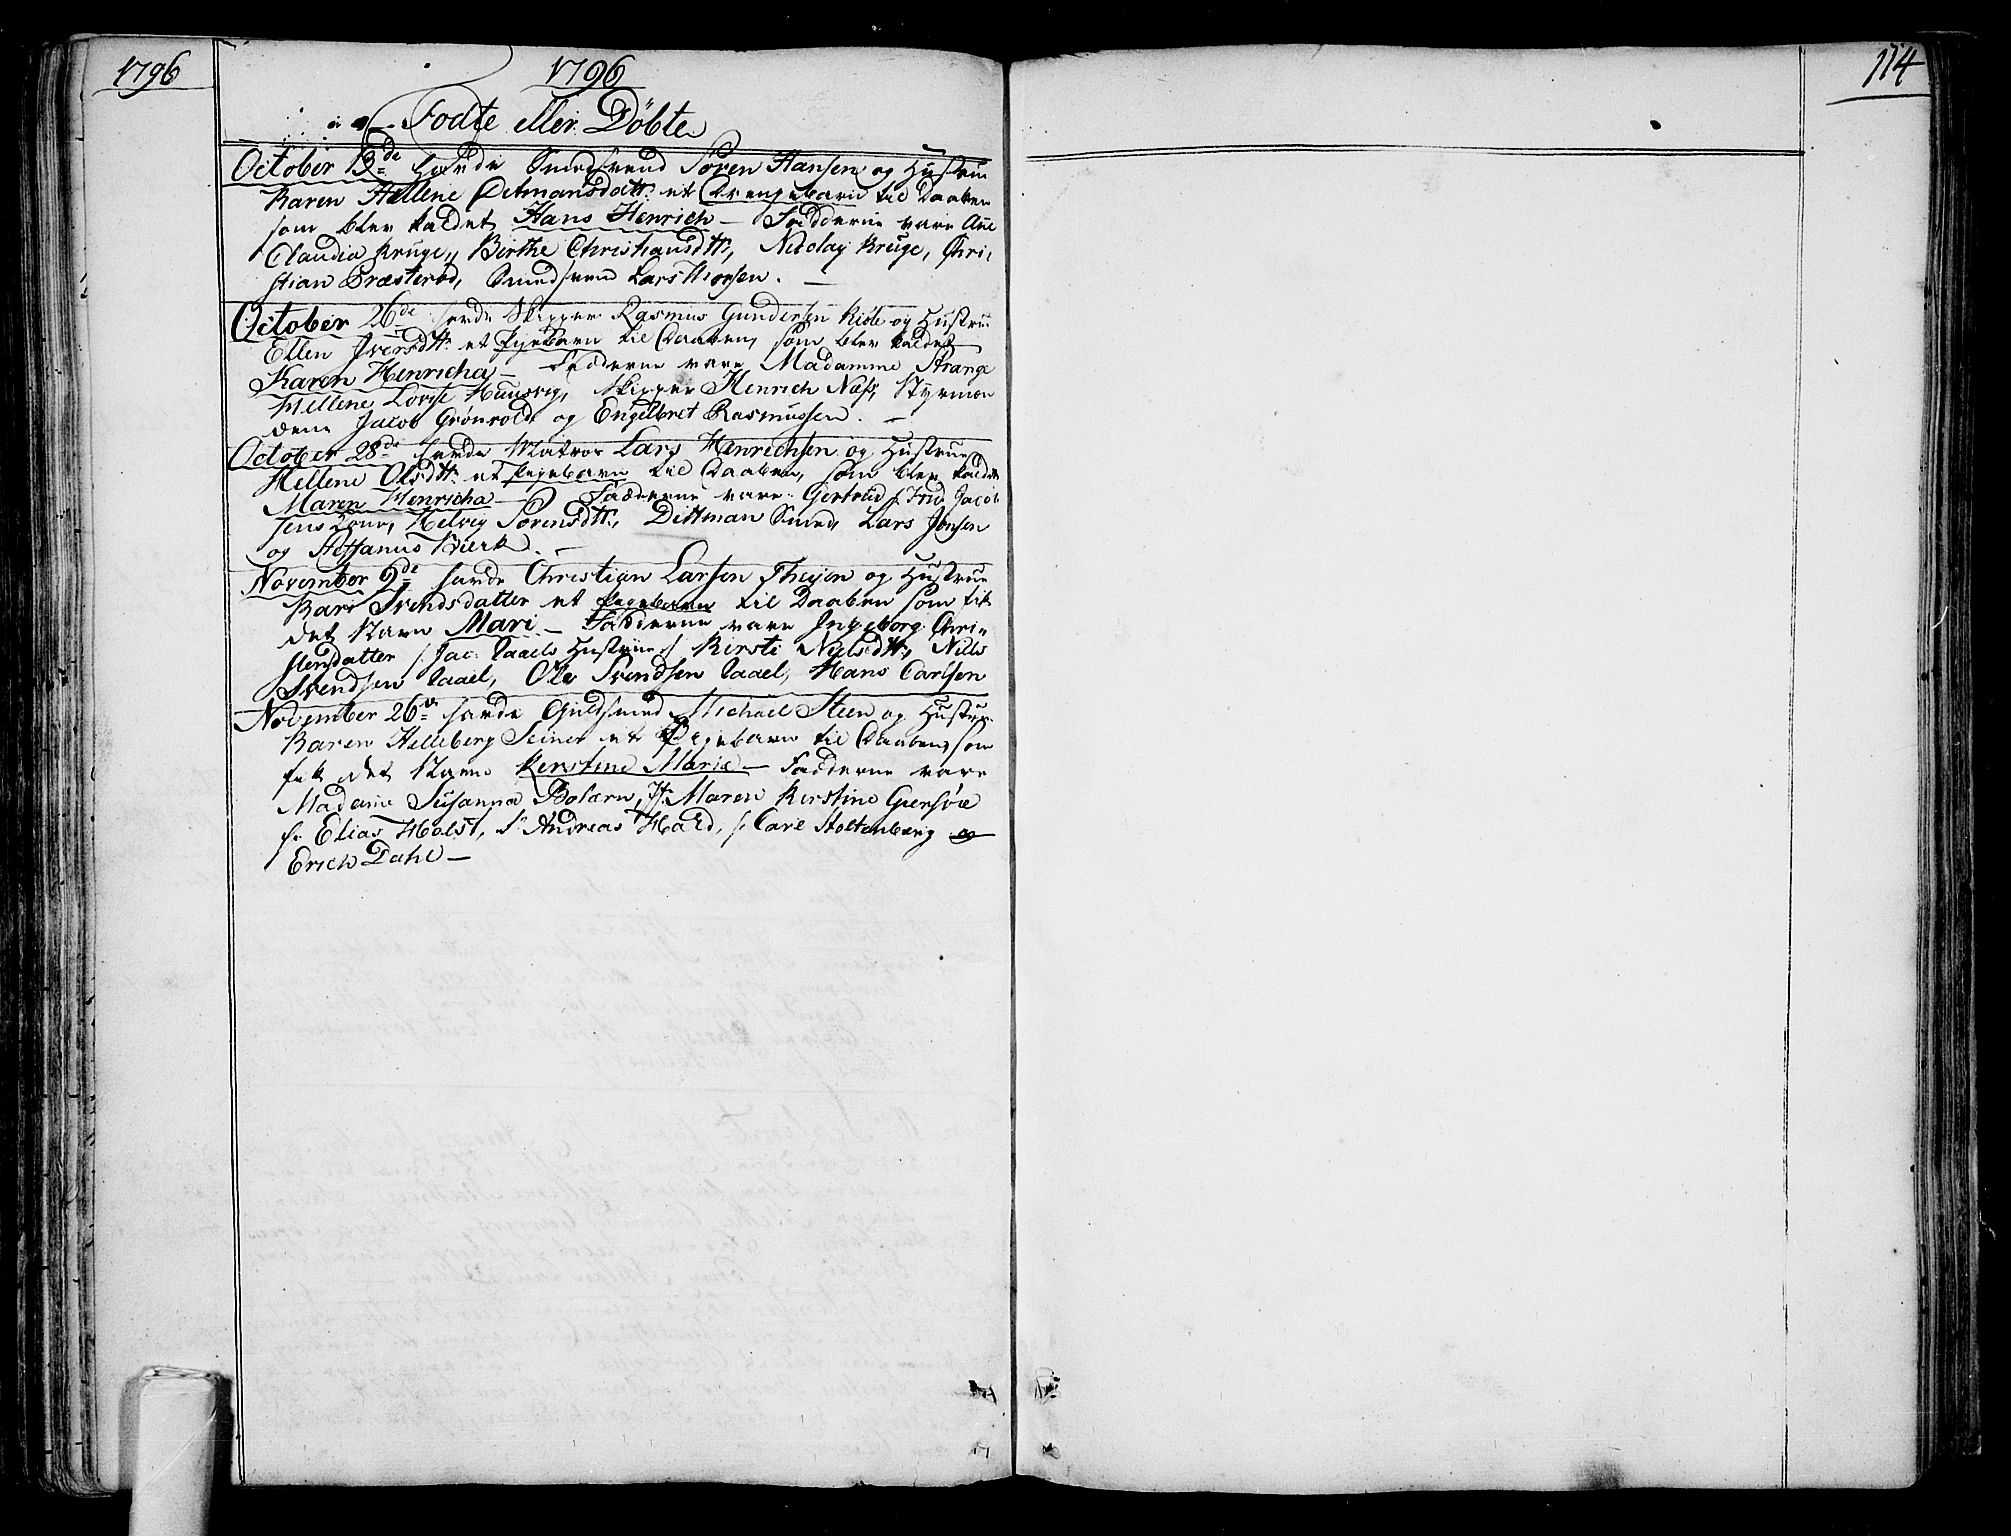 1796
1796
114
Fødte eller Døbte
October 13de havde Smedsvend Søren Hansen og Hustrue
Karen Hellene Detmansdatt: et Drengebarn til Daaben
som blev kaldet Hans Henrich — Fadderne vare Ane
Claudia Kruge, Birthe Christiansdtt:, Nicolay Kruge, Chri-
stian Præsterød, Smedsvend Lars Thorsen. —
October 26de havde Skipper Rasmus Gundersen Kiøle og Hustrue
Ellen Iversdtt: et Pigebarn til Daaben, som blev kaldet
Karen Henricha — Fadderne vare Madamme Strange
Hellene Lovise Huusvig, Skipper Henrich Næss, Styrmæn
dene Jacob Grønvold og Engelbret Rasmussen. —
October 28de havde Matros Lars Henrichsen og Hustrue
Hellene Olsdtt: et Pigebarn til Daaben, som blev kaldet
Maren Henricha — Fadderne vare: Gertrud Frid: Jacob
sens Kone, Helvig Sørensdtt:, Dittman Smed, Lars Jensen
og Steffanus Kierk. —
November 9de havde Christian Larsen Theyen og Hustrue
Kari Svendsdatter et Pigebarn til Daaben som fik
det Navn Mari — Fadderne vare Ingeborg Chri-
stensdatter /: Jac: Taaels Hustrue :/ Kirsti Nielsdtt:, Niels
Svendsen Taael, Ole Svendsen Taael, Hans Carlsen
November 26de havde Guldsmed Michael Steen og Hustrue
Karen Helleberg Seiner et Pigebarn til Daaben, som
fik det Navn Kirstine Marie — Fadderne vare
Madame Susanna Bolærn, Jf: Maren Kirstine Giersøe
Sr Elias Holst, Sr Andreas Hald, Sr Carl Stoltenberg og
Erich Dahl —